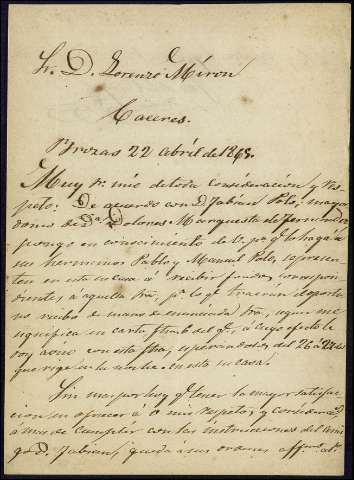 Sr. D. Lorenzo Miron
Caceres.
Brozas 22 Abril de 1865.
Muy Sr. mio de toda consideracion y res-
peto: De acuerdo con D. Fabian Polo, mayor
domo de Dª Dolores Marquesa de
pongo en conocimiento de V. pª qe lo haga á
sus hermanos Pablo y Manuel Polo, se presen-
ten en esta su casa á recibir fondos correspon-
dientes á aquella Sra, pª lo qe traerán
no recibo de mano de enunciada Sra, segun me
significa en carta fha 6 del qe, á cuyo efecto le
doy aviso con esta fha, esperandolos del 26 á 27
que rige en la noche en esta su casa.
Sin mas por hoy qe tener la mayor satisfac-
cion en ofrecer á V. mis respetos, y consideracion
á mas de cumplir con las instrucciones del ami-
go D. Fabian, queda á sus ordenes affmo. at.